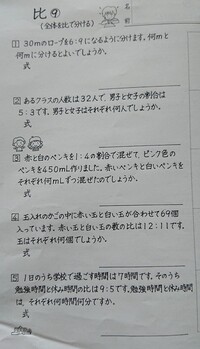 比⑨
(全体を比で分ける)
名
前
1 30mのロープを6:9になるように分けます。何mと
何mに分けるとよいでしょうか。
式
2 あるクラスの人数は32人で、男子と女子の割合は
5:3です。男子と女子はそれぞれ何人でしょうか。
式
3 赤と白のペンキを1:4の割合で混ぜて、ピンク色の
ペンキを450mL作りました。赤いペンキと白いペンキを
それぞれ何mLずつ混ぜたのでしょうか。
式
4 玉入れのかごの中に赤い玉と白い玉が合わせて69個
入っています。赤い玉と白い玉の数の比は12:11です。
玉はそれぞれ何個でしょうか。
式
5 1日のうち学校で過ごす時間は7時間です。そのうち
勉強時間と休み時間の比は9:5です。勉強時間と休み時間
は、それぞれ何時間何分ですか。
式